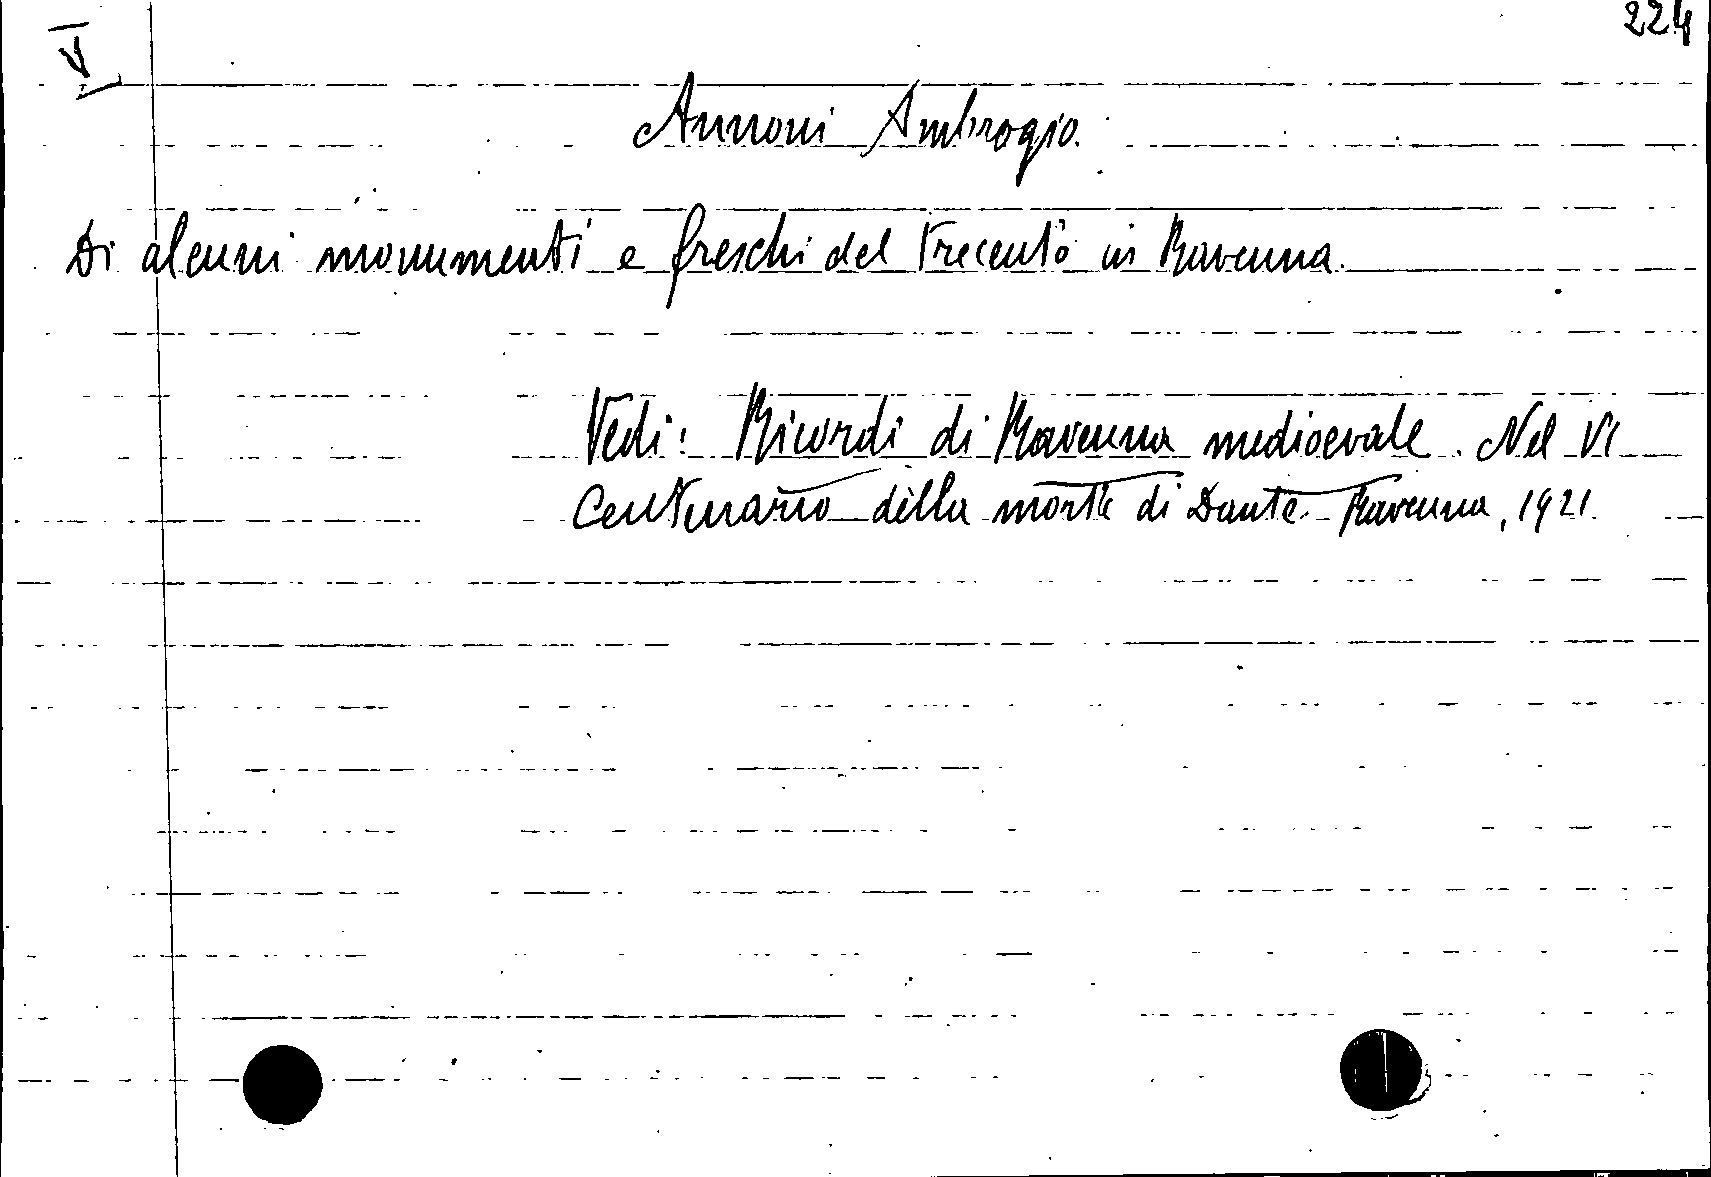 224
Annoni Ambrogio.
Di alcuni monumenti e freschi del Trecento in Ravenna.
Vedi: Ricordi di Ravenna medioevale. Nel VI
Centenario della morte di Dante. Ravenna, 1921.